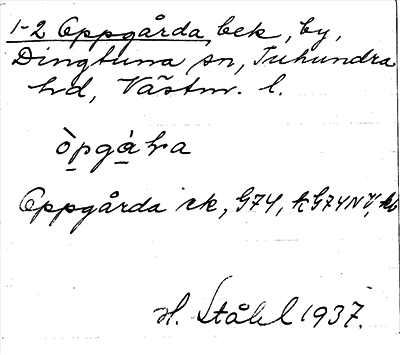 1-2 Oppgårda, bek, by,
Dingtuna sn, Tuhundra
hd, Västm. l.
òpgàɽa
Oppgårda ek, G74, kG74NV,
H. Ståhl 1937.